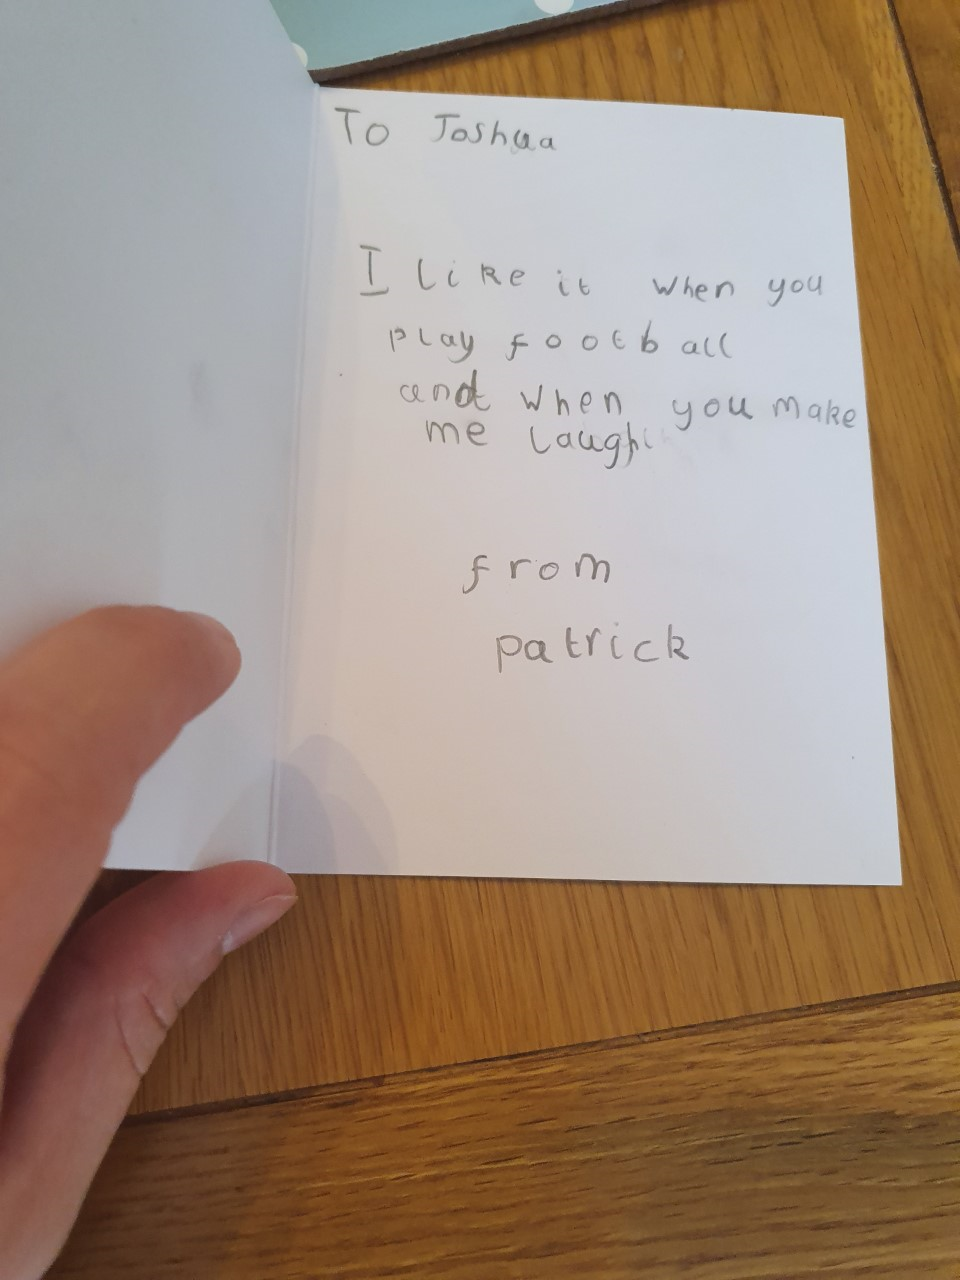 To Joshua
I like it when you
play football
and when you make
me laugh
from
patrick